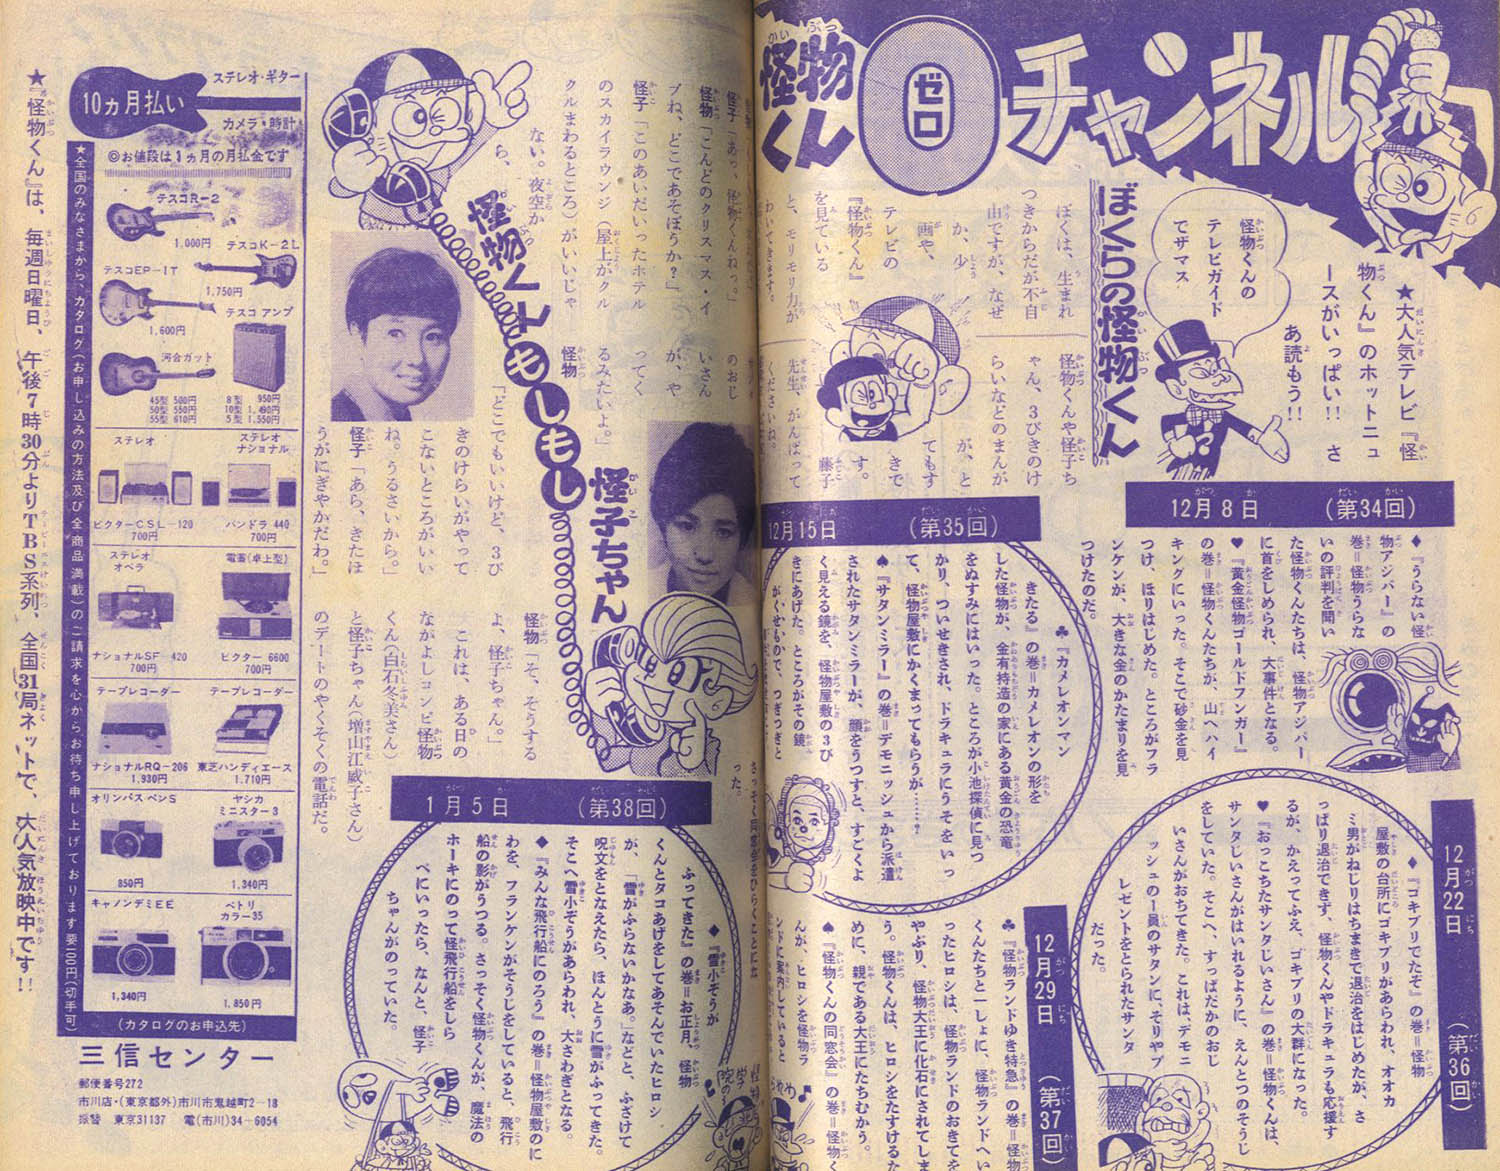 怪物くん
0
ゼロ
チャンネル
★大人気テレビ『怪
物くん』のホットニュ
ースがいっぱい!! さ
あ読もう!!
怪物くんの
テレビガイド
でザマス
ぼくらの怪物くん
ぼくは、生まれ
つきからだが不自
由ですが、なぜ
か、少
画や、
テレビの
『怪物くん』
を見ている
と、モリモリ力が
わいてきます。
怪物くんや怪子ち
ゃん、3びきのけ
らいなどのまんが
が、と
てもす
きで
す。
藤子
先生、がんばって
くださいね。
12月8日 (第34回)
♦『うらない怪
物アジバー』の
巻=怪物うらな
いの評判を聞い
た怪物くんたちは、怪物アジバー
に首をしめられ、大事件となる。
♥『黄金怪物ゴールドフンガー』
の巻=怪物くんたちが、山へハイ
キングにいった。そこで砂金を見
つけ、ほりはじめた。ところがフラ
ンケンが、大きな金のかたまりを見
つけたのだ。
12月15日 (第35回)
♣『カメレオンマン
きたる』の巻=カメレオンの形を
した怪物が、金有特造の家にある黄金の恐竜
をぬすみにはいった。ところが小池探偵に見つ
かり、ついせきされ、ドラキュラにうそをいっ
て、怪物屋敷にかくまってもらうが……?
♠『サタンミラー』の巻=デモニッシュから派遣
されたサタンミラーが、顔をうつすと、すごくよ
く見える鏡を、怪物屋敷の3び
きにあげた。ところがその鏡
がくせもので、つぎつぎと
12月22日 (第36回)
♦『ゴキブリでたぞ』の巻=怪物
屋敷の台所にゴキブリがあらわれ、オオカ
ミ男がねじりはちまきで退治をはじめたが、さ
っぱり退治できず、怪物くんやドラキュラも応援す
るが、かえってふえ、ゴキブリの大群になった。
♥『おっこちたサンタじいさん』の巻=怪物くんは、
サンタじいさんがはいれるように、えんとつのそうじ
をしていた。そこへ、すっぱだかのおじ
いさんがおちてきた。これは、デモニ
ッシュの一員のサタンに、そりやプ
レゼントをとられたサンタ
だった。
12月29日 (第37回)
♣『怪物ランドゆき特急』の巻=怪物
くんたちと一しょに、怪物ランドへい
ったヒロシは、怪物ランドのおきてを
やぶり、怪物大王に化石にされてしま
う。怪物くんは、ヒロシをたすけるた
めに、親である大王にたちむかう。
♠『怪物くんの同窓会』の巻=怪物く
んが、ヒロシを怪物ラ
ンドに案内していると
さっそく同窓会をひらくことにな
った。
怪物くんもしもし怪子ちゃん
怪子「あっ、怪物くんねっ。」
怪物「こんどのクリスマス・イ
ブね、どこであそぼうか?」
怪子「このあいだいったホテル
のスカイラウンジ(屋上がクル
クルまわるところ)がいいじゃ
ない。夜空か
ら、
のおじ
いさん
が、や
ってく
るみたいよ。」
怪物
「どこでもいいけど、3び
きのけらいがやって
こないところがいい
ね。うるさいから。」
怪子「あら、きたほ
うがにぎやかだわ。」
怪物「そ、そうする
よ、怪子ちゃん。」
これは、ある日の
なかよしコンビ怪物
くん(白石冬美さん)
と怪子ちゃん(増山江威子さん)
のデートのやくそくの電話だ。
1月5日 (第38回)
♦『雪小ぞうが
ふってきた』の巻=お正月、怪物
くんとタコあげをしてあそんでいたヒロシ
が、「雪がふらないかなあ。」などと、ふざけて
呪文をとなえたら、ほんとうに雪がふってきた。
そこへ雪小ぞうがあらわれ、大さわぎとなる。
♦『みんな飛行船にのろう』の巻=怪物屋敷のに
わを、フランケンがそうじをしていると、飛行
船の影がうつる。さっそく怪物くんが、魔法の
ホーキにのって怪飛行船をしら
べにいったら、なんと、怪子
ちゃんがのっていた。
ステレオ・ギター
10ヵ月払い
カメラ・時計
◎お値段は1ヵ月の月払金です
テスコR-2
1,000円
テスコK-2L
1,750円
テスコEP-1T
1,600円
テスコ アンプ
8型 950円
10型 1,490円
5型 1,550円
河合ガット
45型 500円
50型 550円
55型 610円
ステレオ
ビクターCSL-120
700円
ステレオ
ナショナル
パンドラ 440
700円
ステレオ
オペラ
ナショナルSF-420
700円
電蓄(卓上型)
ビクター 6600
700円
テープレコーダー
ナショナルRQ-206
1,930円
テープレコーダー
東芝ハンディエース
1,710円
オリンパスペンS
850円
ヤシカ
ミニスター3
1,340円
キャノンデミEE
1,340円
ペトリ
カラー35
1,850円
(カタログのお申込先)
三信センター
郵便番号272
市川店・(東京都外)市川市鬼越町2-18
振替 東京31137 電(市川)34-6054
★全国のみなさまから、カタログ(お申し込みの方法及び全商品満載)のご請求を心からお待ち申し上げております 要100円(切手可)
★『怪物くん』は、毎週日曜日、午後7時30分よりTBS系列、全国31局ネットで、大人気放映中です!!